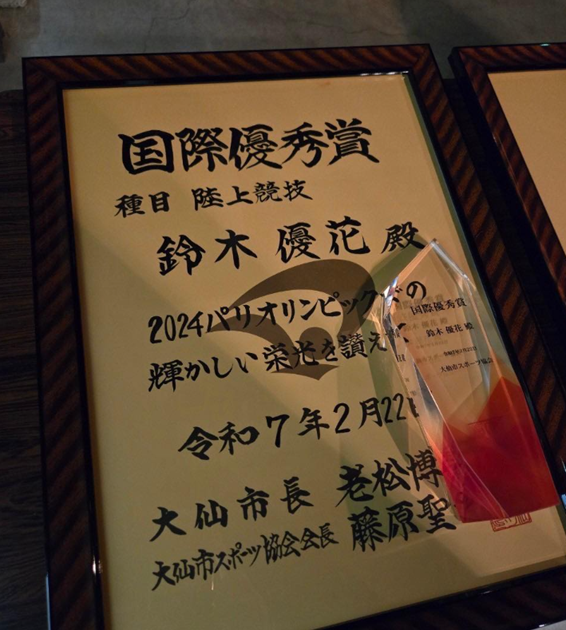 国際優秀賞
種目 陸上競技
鈴木 優花 殿
2024パリオリンピックでの
輝かしい栄光を讃え
令和7年2月22
大仙市長 老松博
大仙市スポーツ協会会長 藤原聖
国際優秀賞
鈴木 優花 殿
大仙市スポーツ協会